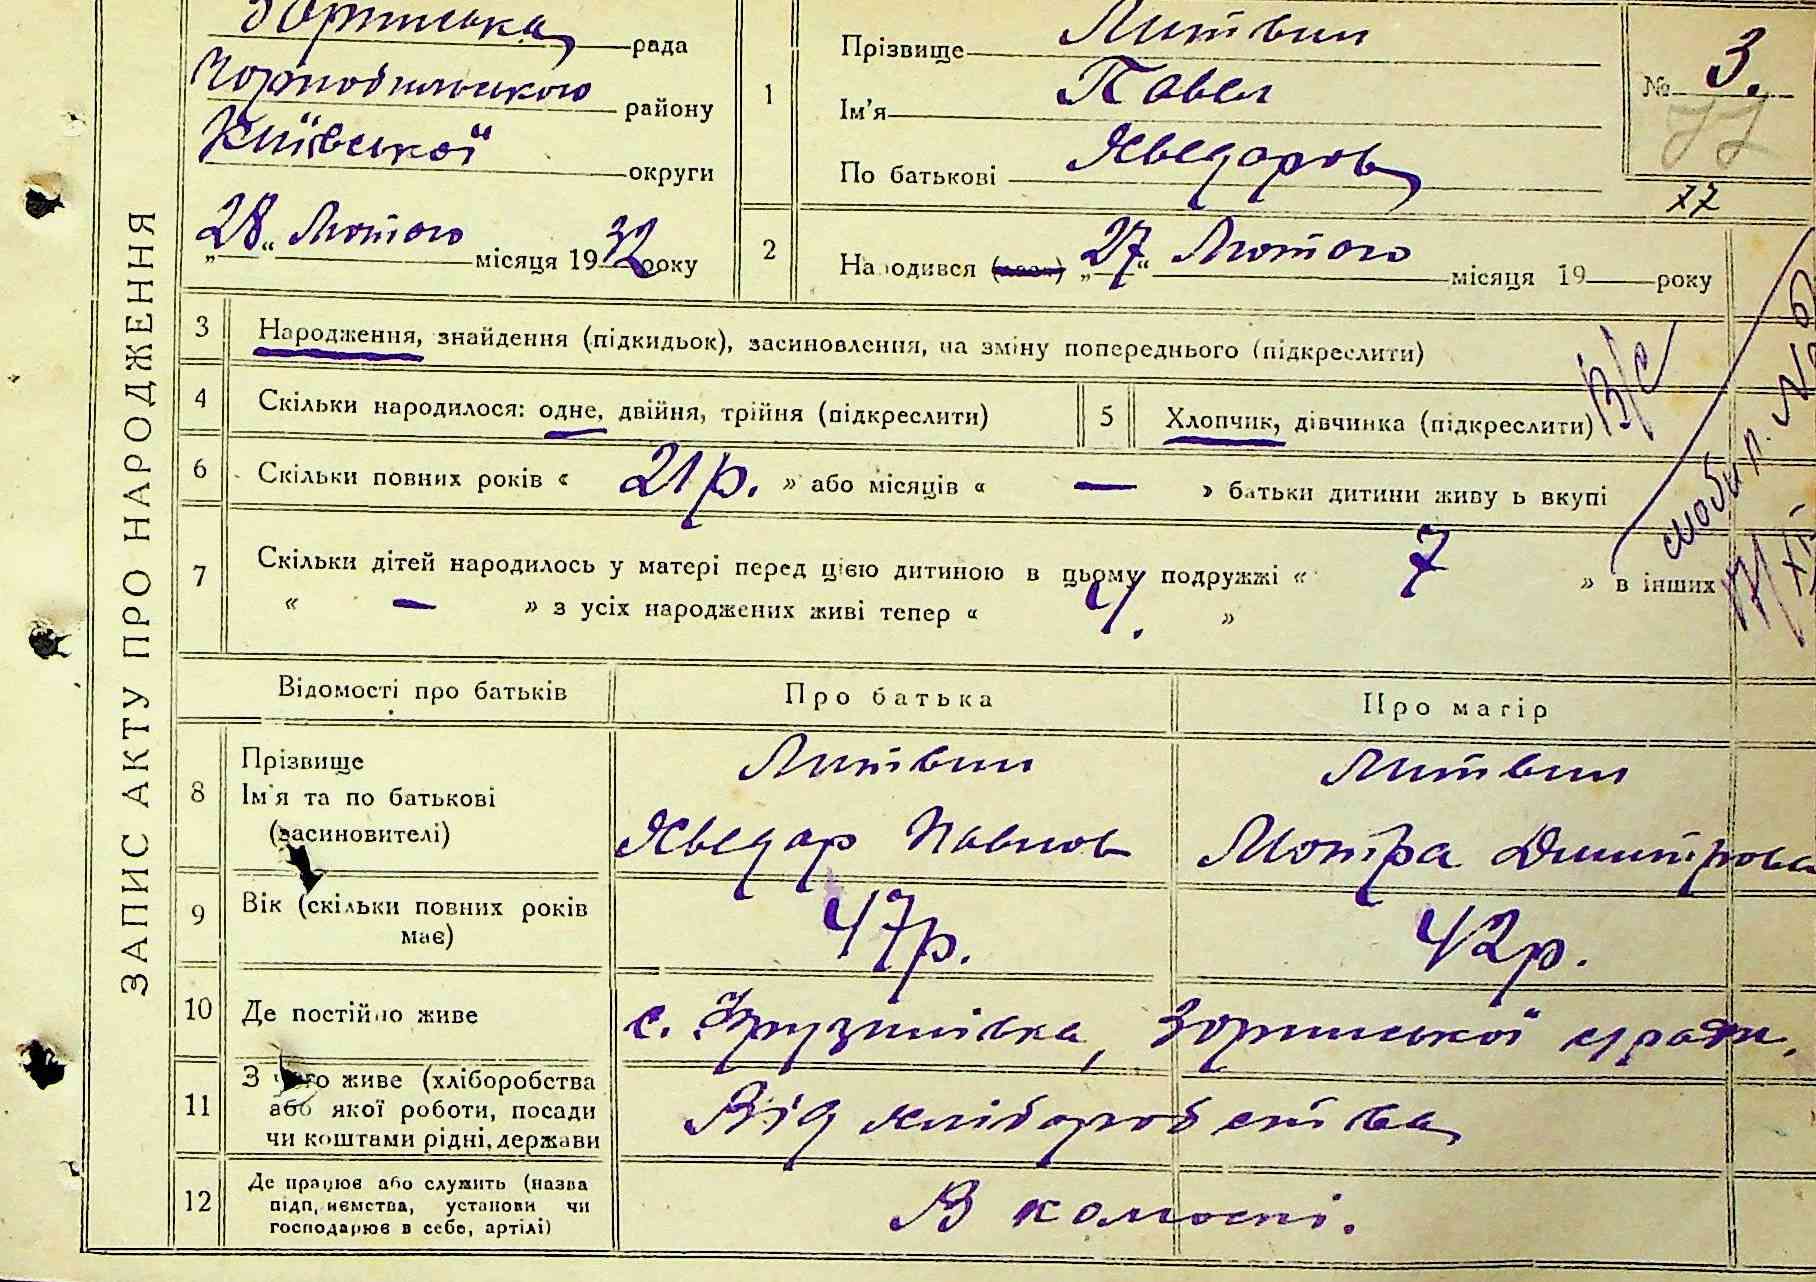 ЗАПИС АКТУ ПРО НАРОДЖЕННЯ
Зоринська рада
Чорнобильського району
Київської округи
„28“ Лютого місяця 1932 року
1
Прізвище Литвин
Ім'я Павел
По батькові Хведоров
№ 3.
77
77
2
Народився „27“ Лютого місяця 19 року
3 Народження, знайдення (підкидьок), засиновлення, на зміну попереднього (підкреслити)
4 Скільки народилося: одне, двійня, трійня (підкреслити)
5 Хлопчик, дівчинка (підкреслити)
В/с
6 Скільки повних років « 21 р. » або місяців « — » батьки дитини живуть вкупі
7 Скільки дітей народилось у матері перед цією дитиною в цьому подружжі « 7 » в інших
« — » з усіх народжених живі тепер « 4. »
Відомості про батьків Про батька Про матір
8 Прізвище
Ім'я та по батькові
(засиновителі)
Литвин Литвин
Хведар Павлов Мотра Дмитрова
9 Вік (скільки повних років має) 47 р. 42 р.
10 Де постійно живе с. Грузинівка, Зоринської с/ради.
11 З чого живе (хліборобства
або якої роботи, посади
чи коштами рідні, держави
Від хліборобства
12 Де працює або служить (назва
підприємства, установи чи
господарює в себе, артілі)
В колгоспі.